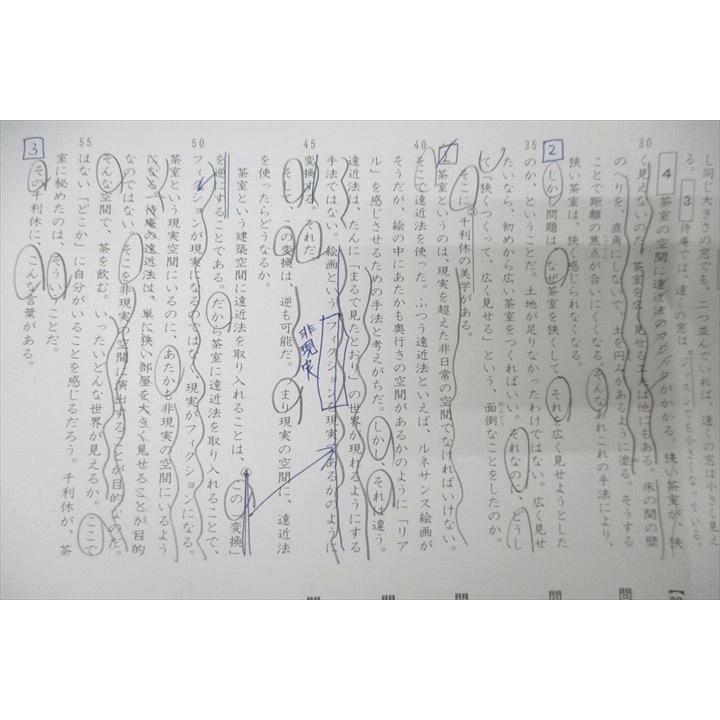 し同じ大きさの窓でも、二つ並んでいれば、遠くの窓は小さく見え
る。 3 待庵では、遠くの窓は でも小さくなっている。
30
4 茶室の空間に遠近法のマジックがかかる。狭い茶室が、狭
く見えないのだ。茶室を広く見せる工夫は他にもある。床の間の壁
のへりを、直角にしないで、土を円みがあるように塗る。そうする
ことで距離の焦点が合いにくくなる。そんなあれこれの手法により、
狭い茶室は、狭く感じられなくなる。
2
しかし問題は、なぜ茶室を狭くして、それを広く見せようとした
35
のか、ということだ。土地が足りなかったわけではない。広く見せ
たいなら、初めから広い茶室をつくればいい。それなのに、どうし
て「狭くつくって、広く見せる」という、面倒なことをしたのか。
めんどう
そこに③千利休の美学がある。
茶室というのは、現実を超えた非日常の空間でなければいけない。
40
そこで遠近法を使った。ふつう遠近法といえば、ルネサンス絵画が
そうだが、絵の中にあたかも奥行きの空間があるかのように「リア
ル」を感じさせるための手法と考えがちだ。しかし、それは違う。
遠近法は、たんに「まるで見たとおり」の世界が現れるようにする
手法ではない。絵画というフィクションを現実であるかのように
非現実
45
変換する、それだ。
そして、この変換は、逆も可能だ。つまり現実の空間に、遠近法
を使ったらどうなるか。
茶室という建築空間に遠近法を取り入れることは、④この「変換」
を逆にすることである。だから茶室に遠近法を取り入れることで、
50
フィクションが現実になるのではなく、現実がフィクションになる。
茶室という現実空間にいるのに、あたかも非現実の空間にいるよう
になる。待庵の遠近法は、単に狭い部屋を大きく見せることが目的
なのではない。そこを非現実の空間に演出することが目的なのだ。
そんな空間で、茶を飲む。いったいどんな世界が見えるか。ここで
55
はない「どこか」に自分がいることを感じるだろう。千利休が、茶
室に秘めたのは、そういうことだ。
3
その千利休に、こんな言葉がある。
問
問
問
問
問